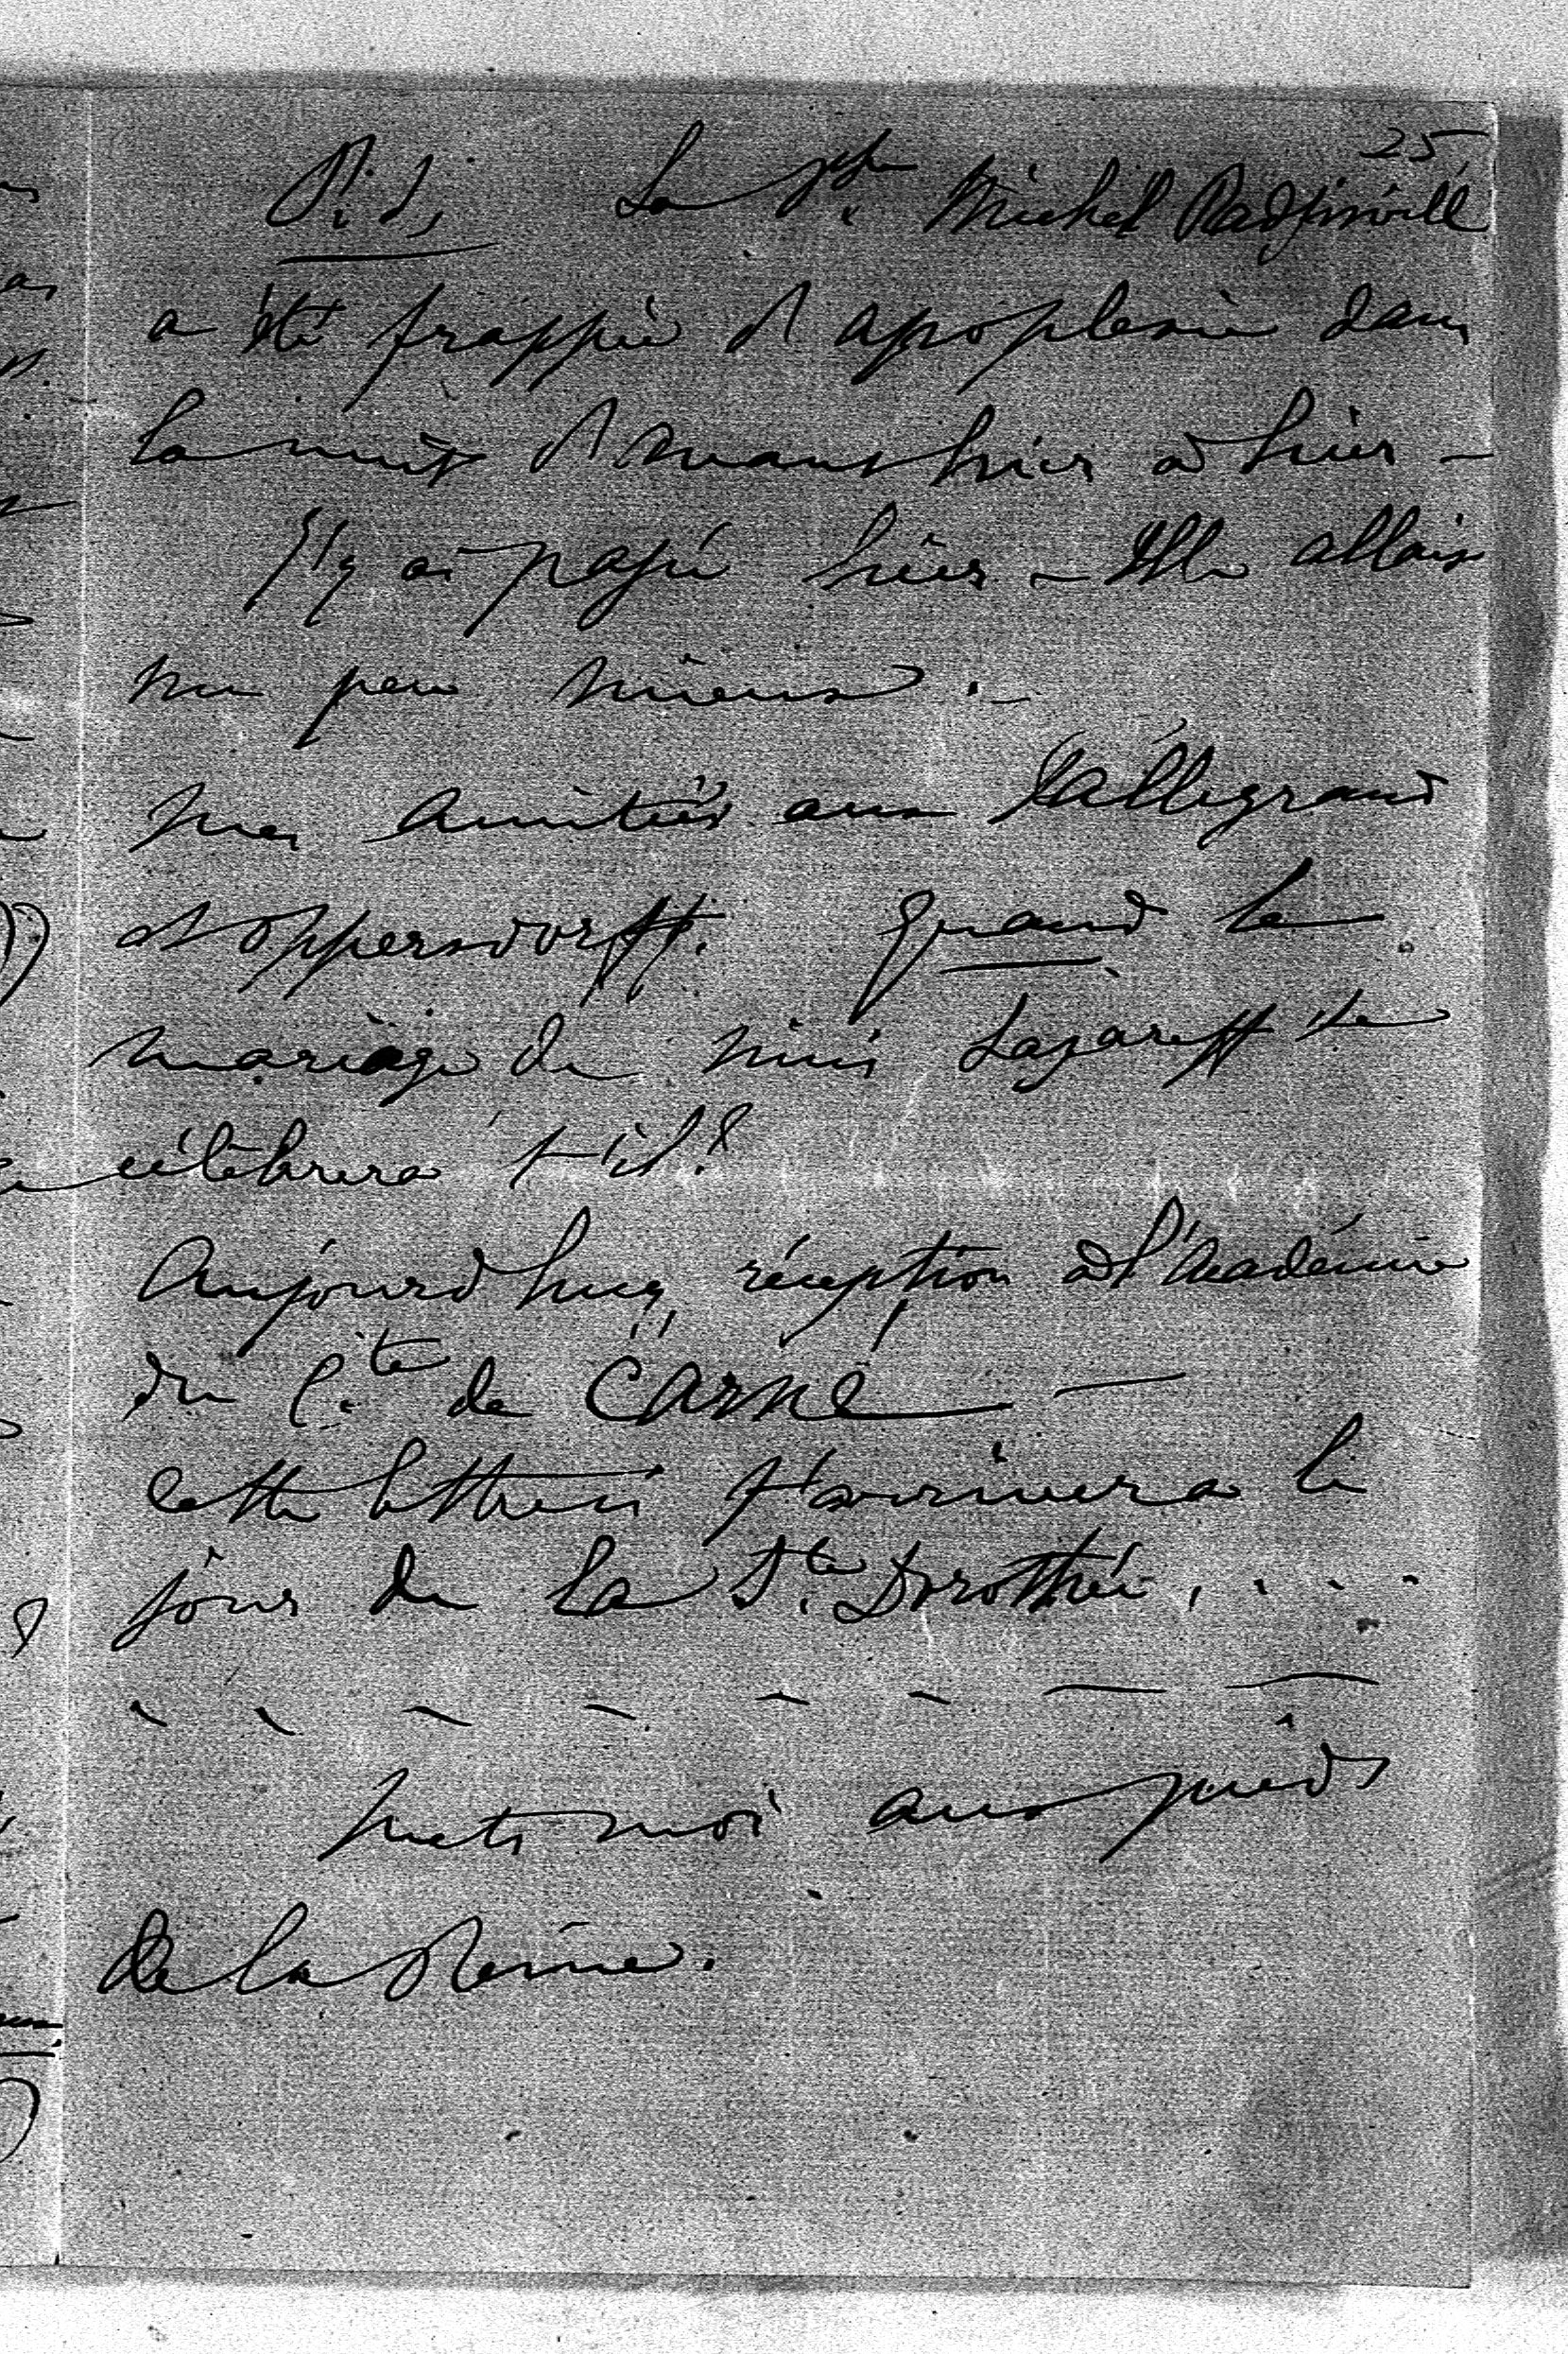 25
P. S. La P.sse Michel Radziwill
a été frappée d'apoplexie dans
la nuit d'avant hier à hier –
J'y ai passé hier – Elle allait
un peu mieux. –
Mes amitiés aux Talleyrand
et Oppersdorff. Quand le
mariage de Miss Lazareff se
célébrera t'il?
Aujourd'huy réception à l'Académie
du C.te de Carné —
Cette lettre ci t'arrivera le
jour de la S.te Dorothée. . . .
Mets moi aux pieds
de la Reine.